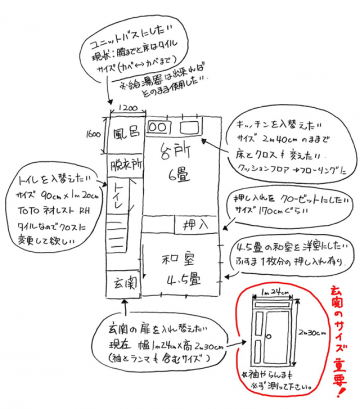 ユニットバスにしたい
現状：腰までと床はタイル
サイズ（カベ↔カベまで）
※給湯器は出来れば
そのまま使用したい.
1200
1600
風呂
脱衣所
トイレ
玄関
台所
6畳
押入
和室
4.5畳
キッチンを入替えたい
サイズ 2m40cmのままで
床とクロスも変えたい.
クッションフロア→フローリングに
トイレを入替えたい
サイズ 90cm×1m20cm
TOTO ネオレスト RH
タイルなのでクロスに
変更して欲しい
押し入れを クローゼットにしたい
サイズ170cmぐらい
4.5畳の和室を洋室にしたい
ふすま1枚分の押し入れ有り
玄関の扉を入れ替えたい
現在 幅1m24cm×高2m30cm
（袖とランマも含むサイズ）
1m24cm
2m30cm
※袖やらんまも
必ず測って下さい。
玄関のサイズ重要！